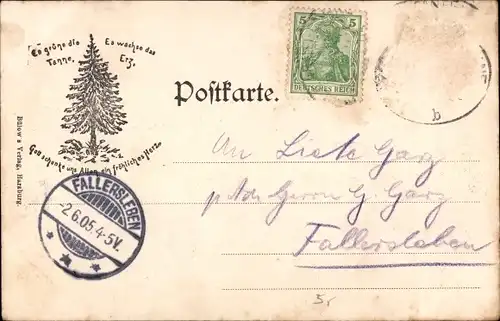 Es grüne die Es wachse das
Tanne, Erz,
Gott schenke uns Allen ein fröhliches Herz.
Bülow's Verlag, Harzburg.
Postkarte.
5 5
DEUTSCHES REICH
b
FALLERSLEBEN
2.6.05.4-5V.
An Liete Garz
p Adr Herrn G. Garz
Fallersleben
5,